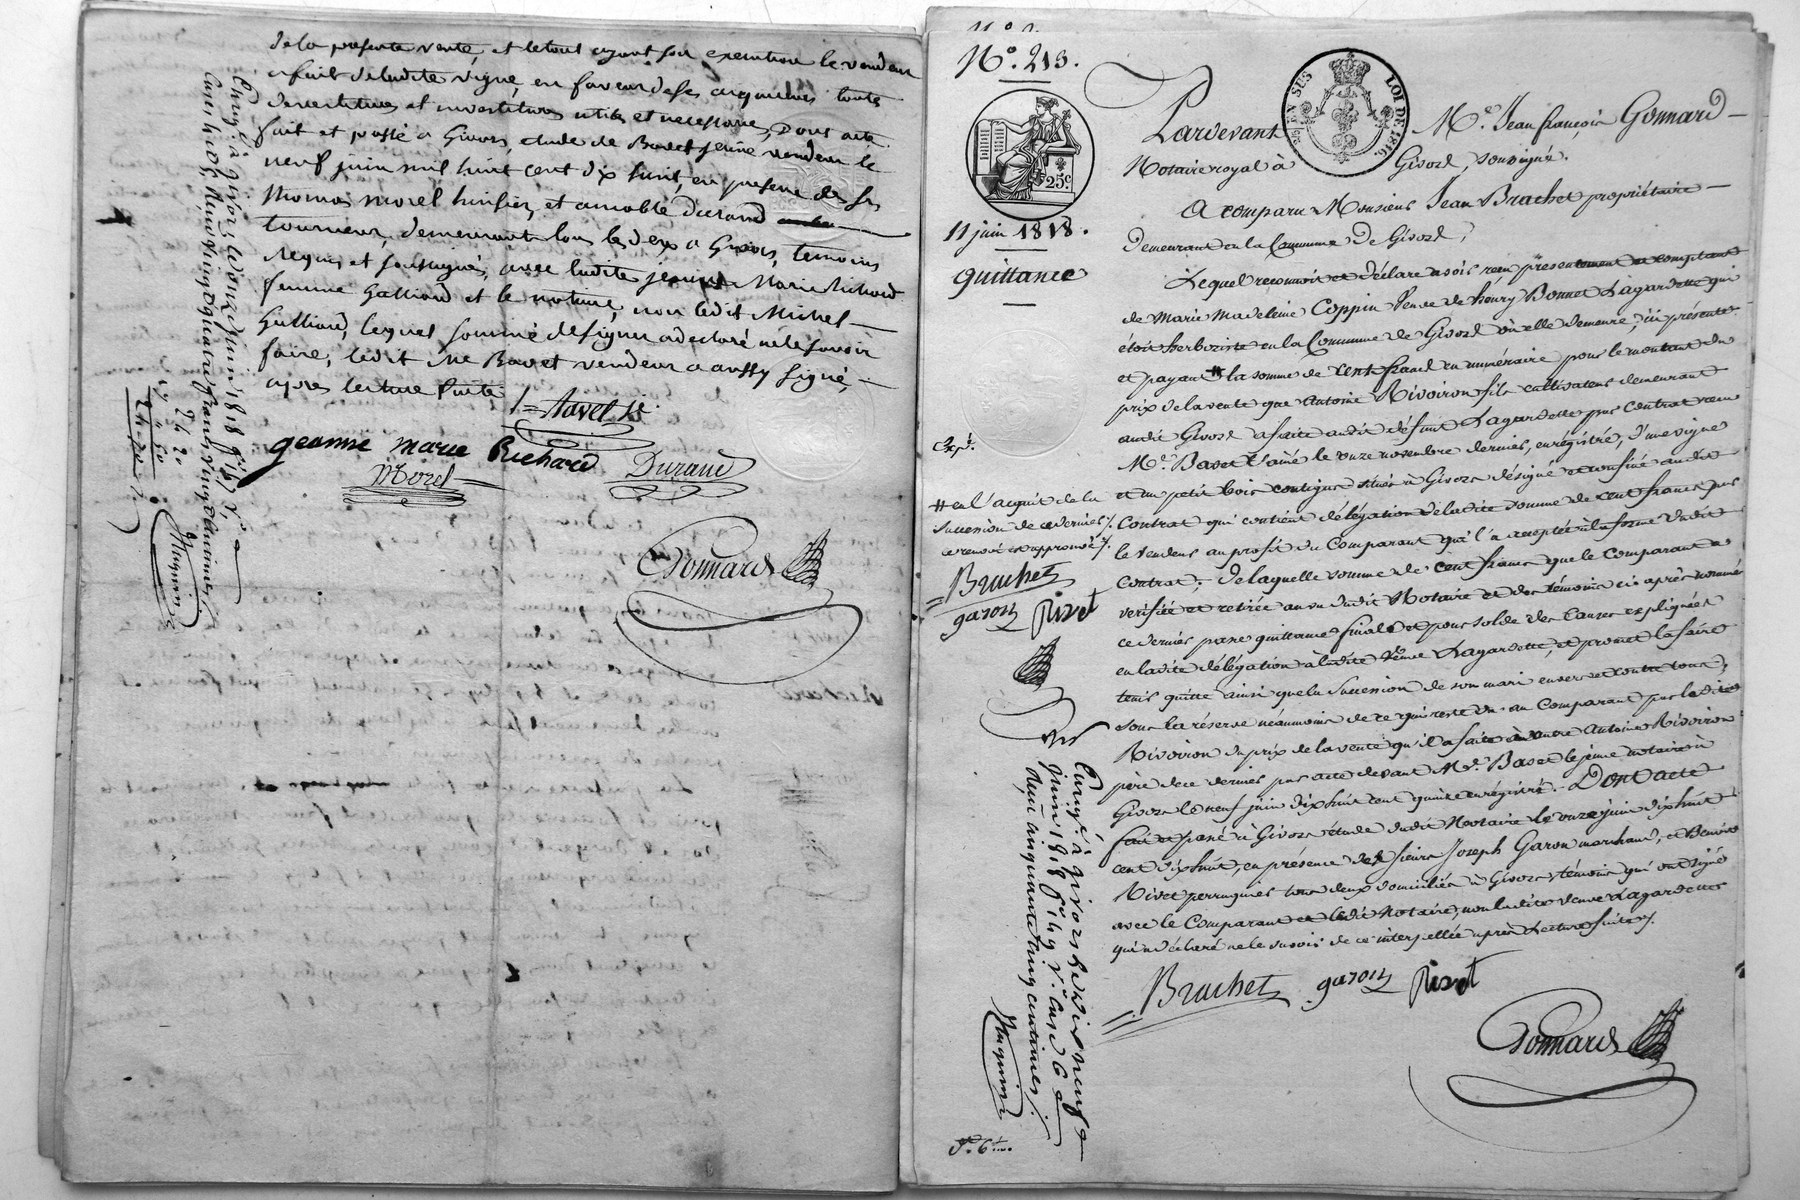 de la presente vente, et le tout ayant son execution le vendeur
a fait de ladite vigne, en faveur des acquereurs toute
devestitures et investitures utiles et necessaire, Dont acte
fait et passé a Givors, etude de Bavet jeune vendeur le
neuf juin mil huit cent dix huit, en presence des Srs
Thomas morel huissier, et aimable durand
tourneur, demeurant tous les deux a Givors, temoins
requis et soussignés, avec ladite jeanne Marie Richard
femme Galliard et le notaire, non ledit Michel
Galliard, lequel sommé de signer a declaré ne le savoir
faire, ledit Me Bavet vendeur a aussy signé
apres lecture faite
jeanne marie Richard
Durand
Morel
Gonnard
Enregé à givors le onze juin 1818 fo
quatre francs vingt
24 20
N° 213.
25c
11 juin 1818.
Quittance
EN SUS LOI DE 1816.
Pardevant Me. Jean françois Gonnard
Notaire royal à Givors, soussigné.
A comparu Monsieur Jean Brachet propriétaire
demeurant en la Commune de Givors,
Lequel reconnoit et déclare avoir reçu présentement et comptant
de Marie Madeleine Coppin Veuve de henry Bonnet Lagardette qui
étoit herboriste en la Commune de Givors où elle demeure, ici présente
et payant # la somme de Cent francs en numéraire pour le montant du
prix de la vente que Antoine Rivoiron fils cultivateur demeurant
audit Givors a faite audit défunt Lagardette par Contrat reçu
Me. Bavet l'ainé le onze novembre dernier, enregistré, d'une vigne
et un petit bois contigus situés à Givors désigné et confiné audit
Contrat qui contient délégation de ladite somme de cent francs par
le vendeur au profit du Comparant qui l'a acceptée à la forme dudit
Contrat; de laquelle somme de cent francs que le comparant a
verifiée et retirée au vu dudit Notaire et des témoins ci après nommés
ce dernier passe quittance finale et pour solde des Causes expliquées
en ladite délégation à ladite veuve Lagardette, et promet la faire
tenir quitte ainsi que la Succession de son mari envers et contre tous,
sous la réserve néanmoins de ce qui reste du au Comparant par ledit
Rivoiron du prix de la vente qu'il a faite à autre Antoine Rivoiron
père de ce dernier par acte devant Me. Bavet le jeune notaire à
Givors le neuf juin dix huit cent quinze enregistré. Dont acte
fait et passé à Givors étude dudit Notaire le onze juin dix huit
cent dix huit, en présence des sieurs Joseph Garon marchand, et Benoit
Rivet perruquier tous deux domiciliés à Givors témoins qui ont signé
avec le Comparant et ledit Notaire, non ladite veuve Lagardette
qui a déclaré ne le savoir de ce interpellée après Lecture faite.
Brachet garon Rivet
Gonnard
Exp.
# en l'acquit de la
Succession de ce dernier
ce renvoi est approuvé
Brachet
garon Rivet
Enregé. à givors le dix neuf
juin 1818 fo 149 Vo. Case 6
deux cinquante cinq centimes